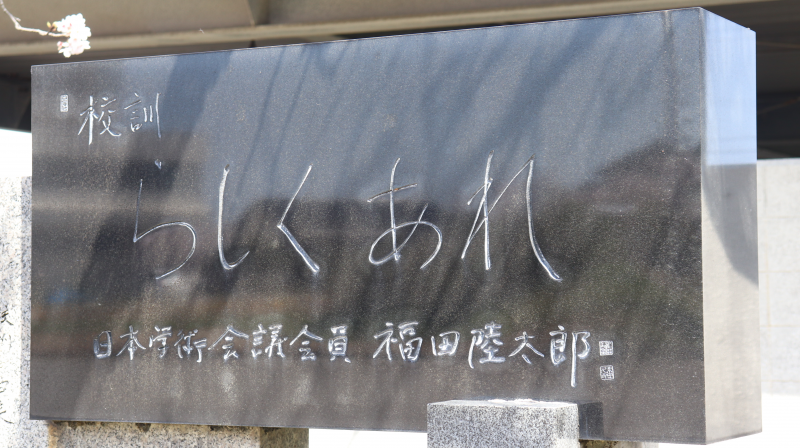 校訓
らしくあれ
日本学術会議会員 福田陸太郎